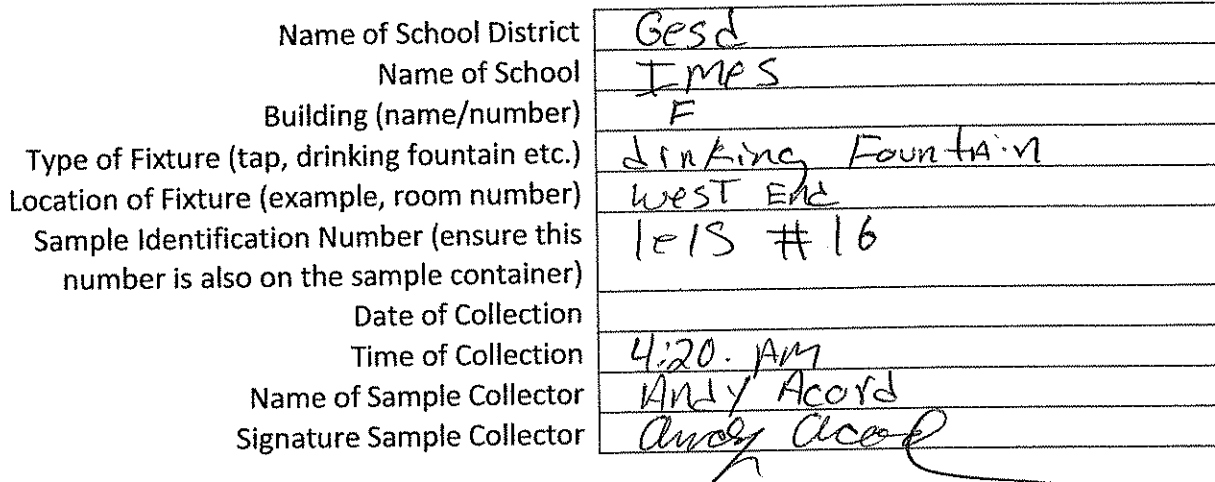 Name of School District Gesd
Name of School Imes
Building (name/number) F
Type of Fixture (tap, drinking fountain etc.) drinking Fountain
Location of Fixture (example, room number) West End
Sample Identification Number (ensure this #16
number is also on the sample container)
Date of Collection
Time of Collection 4:20. AM
Name of Sample Collector Andy Acord
Signature Sample Collector Andy Acord